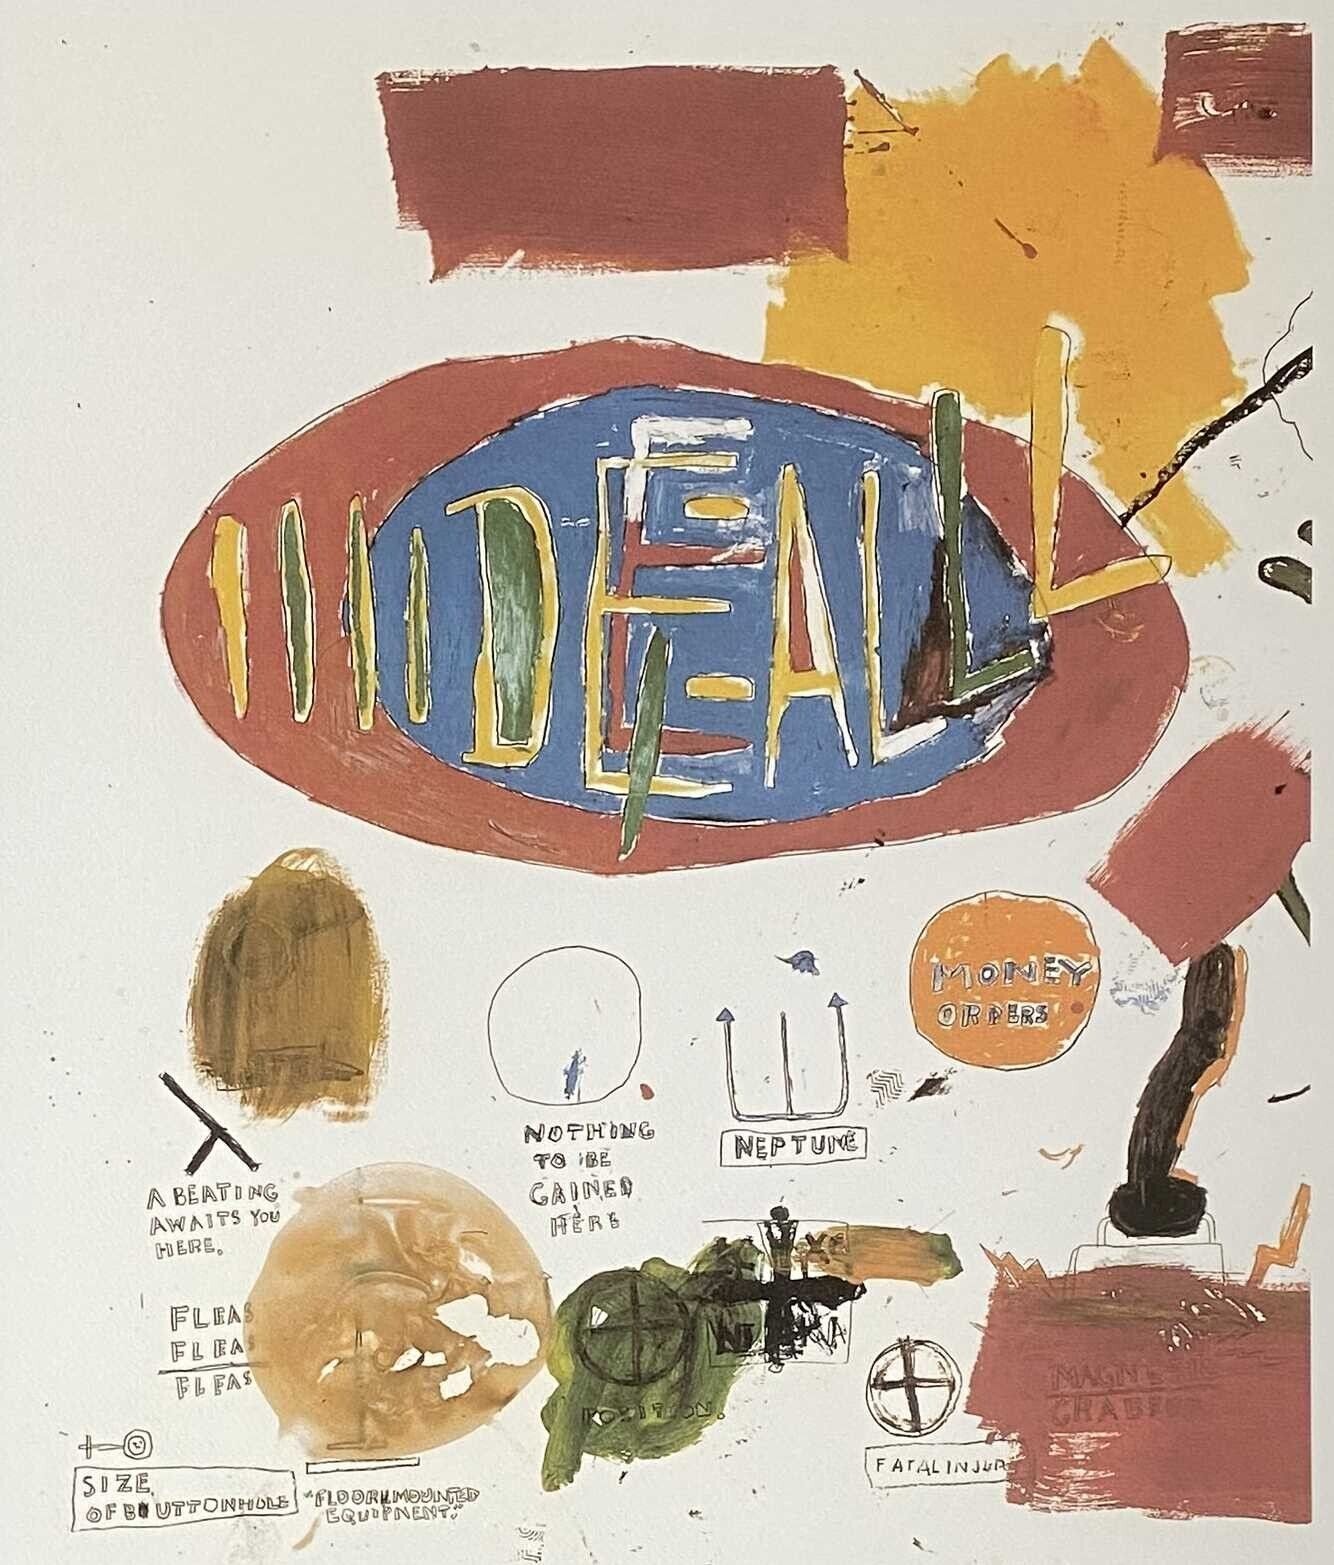 IIIIDEALLL
MONEY
ORDERS
NOTHING
TO BE
GAINED
HERE
NEPTUNE
A BEATING
AWAITS YOU
HERE.
FLEAS
FLEAS
FLEAS
POSITION.
SIZE
OF BUTTONHOLE
"FLOOR MOUNTED
EQUIPMENT."
FATAL INJUR